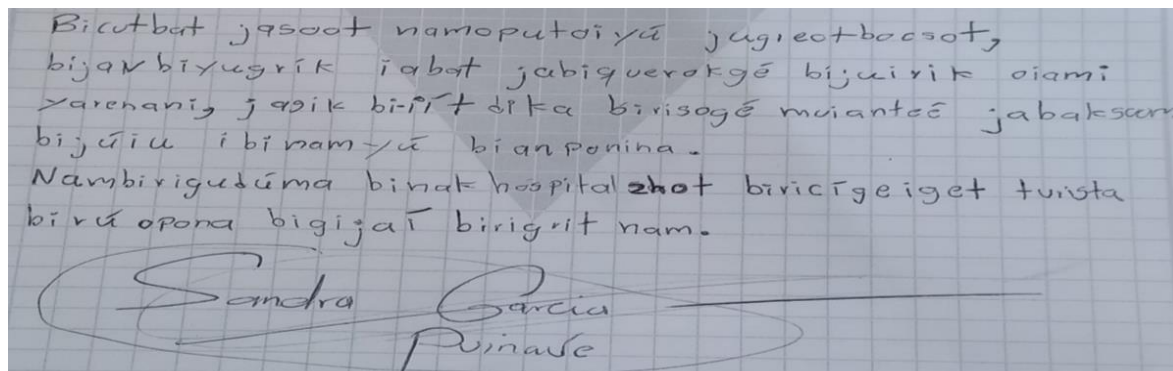 Bicutbat jasoot namoputaiyū jugieotbocsot,
bijar biyugrik iabat jabiquerokgē bijuirik oiami
yarenani, jasik bi-irit dika birisogē muianteē jabaksan
bijūiu ibinam-yū bianponina.
Nambirigudūma binak hospital shot biricīgeiget turista
birū opona bigijaī birigrit nam.
Sandra Garcia
Puinave